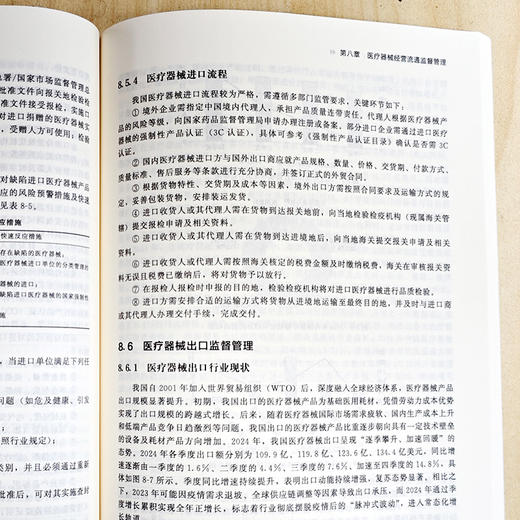 署/国家市场监督管理总
批准文件向报关地检验检
批准文件接受报检，实施口
对进口捐赠的医疗器械实
，受赠人方可使用；检验
对缺陷进口医疗器械产品
应的风险预警措施及快速
见表 8-5。
应措施
快速反应措施
存在缺陷的医疗器械；
医疗器械进口单位的分类管理的
器械的进口；
缺陷进口医疗器械的国家强制性
，当进口单位满足下列任
问题（如危及健康、引发
照行业规定）；
类别，并且必须通过重新
批准后，可对其实施查封
第八章 医疗器械经营流通监督管理
8.5.4 医疗器械进口流程
我国医疗器械进口流程较为严格，需遵循多部门监管要求，关键环节如下：
① 境外企业需指定中国境内代理人，承担产品质量连带责任，代理人根据医疗器械产
品的风险等级，向国家药品监督管理局申请办理注册或备案，部分进口企业需通过进口医疗
器械的强制性产品认证（3C 认证），具体可参考《强制性产品认证目录》确认是否需 3C
认证。
② 国内医疗器械进口方与国外出口商应就产品规格、数量、价格、交货期、付款方式、
质量标准、售后服务等条款进行充分协商，并签订正式的外贸合同。
③ 根据货物特性、交货期及成本等因素，境外出口方需按照合同要求及运输方式的规
定，妥善包装货物，安排装运发货。
④ 进口收货人或其代理人需在货物到达报关地前，向当地检验检疫机构（现属海关管
辖）提交报检申请及相关资料。
⑤ 进口收货人或其代理人需在货物到达进境地后，向当地海关提交报关申请及相关
资料。
⑥ 进口收货人或其代理人需按照海关核定的税费金额及时缴纳税费，海关在审核报关资
料无误且税费已缴纳后，将对货物予以放行。
⑦ 在报检人报检时申报的目的地，检验检疫机构将对进口医疗器械进行品质检验。
⑧ 进口方需安排合适的运输方式将货物从进境地运输至最终目的地，并及时与进口商
或其代理人办理交付手续，完成交付。
8.6 医疗器械出口监督管理
8.6.1 医疗器械出口行业现状
我国自 2001 年加入世界贸易组织（WTO）后，深度融入全球经济体系，医疗器械产品
出口规模显著提升。初期，我国出口的医疗器械产品为基础医用耗材，凭借劳动力成本优势
实现了出口规模的跨越式增长。后来，随着医疗器械国际市场需求疲软、国内生产成本上升
和低端产品竞争日趋激烈等问题，我国出口的医疗器械产品比重逐步朝向具有一定技术壁垒
的设备及耗材产品方向增加。2024 年，我国医疗器械出口呈现“逐季攀升、加速回暖”的
态势。2024 年各季度出口额分别为 109.9 亿、119.8 亿、123.6 亿、134.4 亿美元，同比增
速逐渐由一季度的 1.6%、二季度的 4.4%、三季度的 7.6%，加速至四季度的 14.8%，具
体如图 8-7 所示。季度同比增速持续提升，表明出口动能持续增强，复苏态势显著。相比之
下，2023 年可能因疫情需求退坡、全球供应链调整等因素导致出口承压，而 2024 年通过季
度增长累积实现全年正增长，标志着行业彻底摆脱疫情后的“脉冲式波动”，进入常态化增
长轨道。